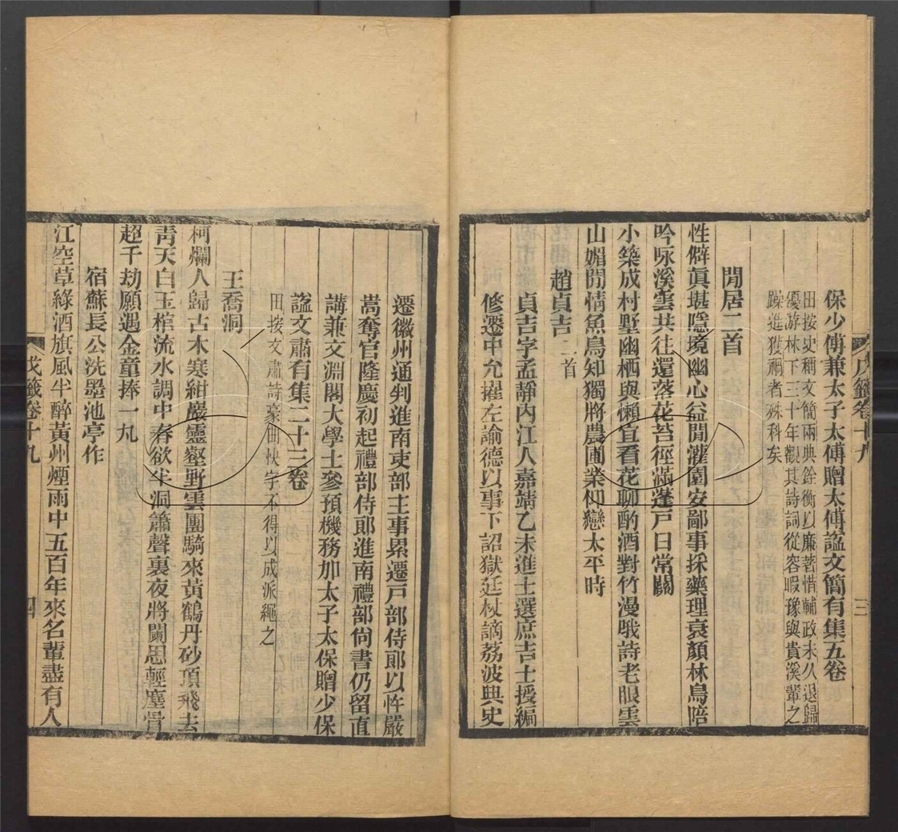 保少傅兼太子太傅贈太傅諡文簡有集五卷
田按史稱文簡兩典銓衡以廉著惜輔政未久退歸
優游林下三十年觀其詩詞從容暇豫與貴溪輩之
躁進獲禍者殊科矣
閒居二首
性僻眞堪隱境幽心益閒灌園安鄙事採藥理衰顏林鳥陪
吟咏溪雲共往還落花苔徑滿蓬戸日常關
小築成村墅幽栖與懶宜看花聊酌酒對竹漫哦詩老眼雲
山媚閒情魚鳥知獨將農圃業仰戀太平時
趙貞吉二首
貞吉字孟靜內江人嘉靖乙未進士選庶吉士授編
修遷中允擢左諭德以事下詔獄廷杖謫荔波典史
戊籤卷十九
三
遷徽州通判進南吏部主事累遷戸部侍郎以忤嚴
嵩奪官隆慶初起禮部侍郎進南禮部尙書仍留直
講兼文淵閣大學士參預機務加太子太保贈少保
諡文肅有集二十三卷
田按文肅詩豪曲快字不得以成派繩之
王喬洞
柯爛人歸古木寒紺巖靈壑野雲團騎來黃鶴丹砂頂飛去
靑天白玉棺流水調中春欲半洞簫聲裏夜將闌思輕塵骨
超千劫願遇金童捧一丸
宿蘇長公洗墨池亭作
江空草綠酒旗風半醉黃州煙雨中五百年來名輩盡有人
戊籤卷十九
四